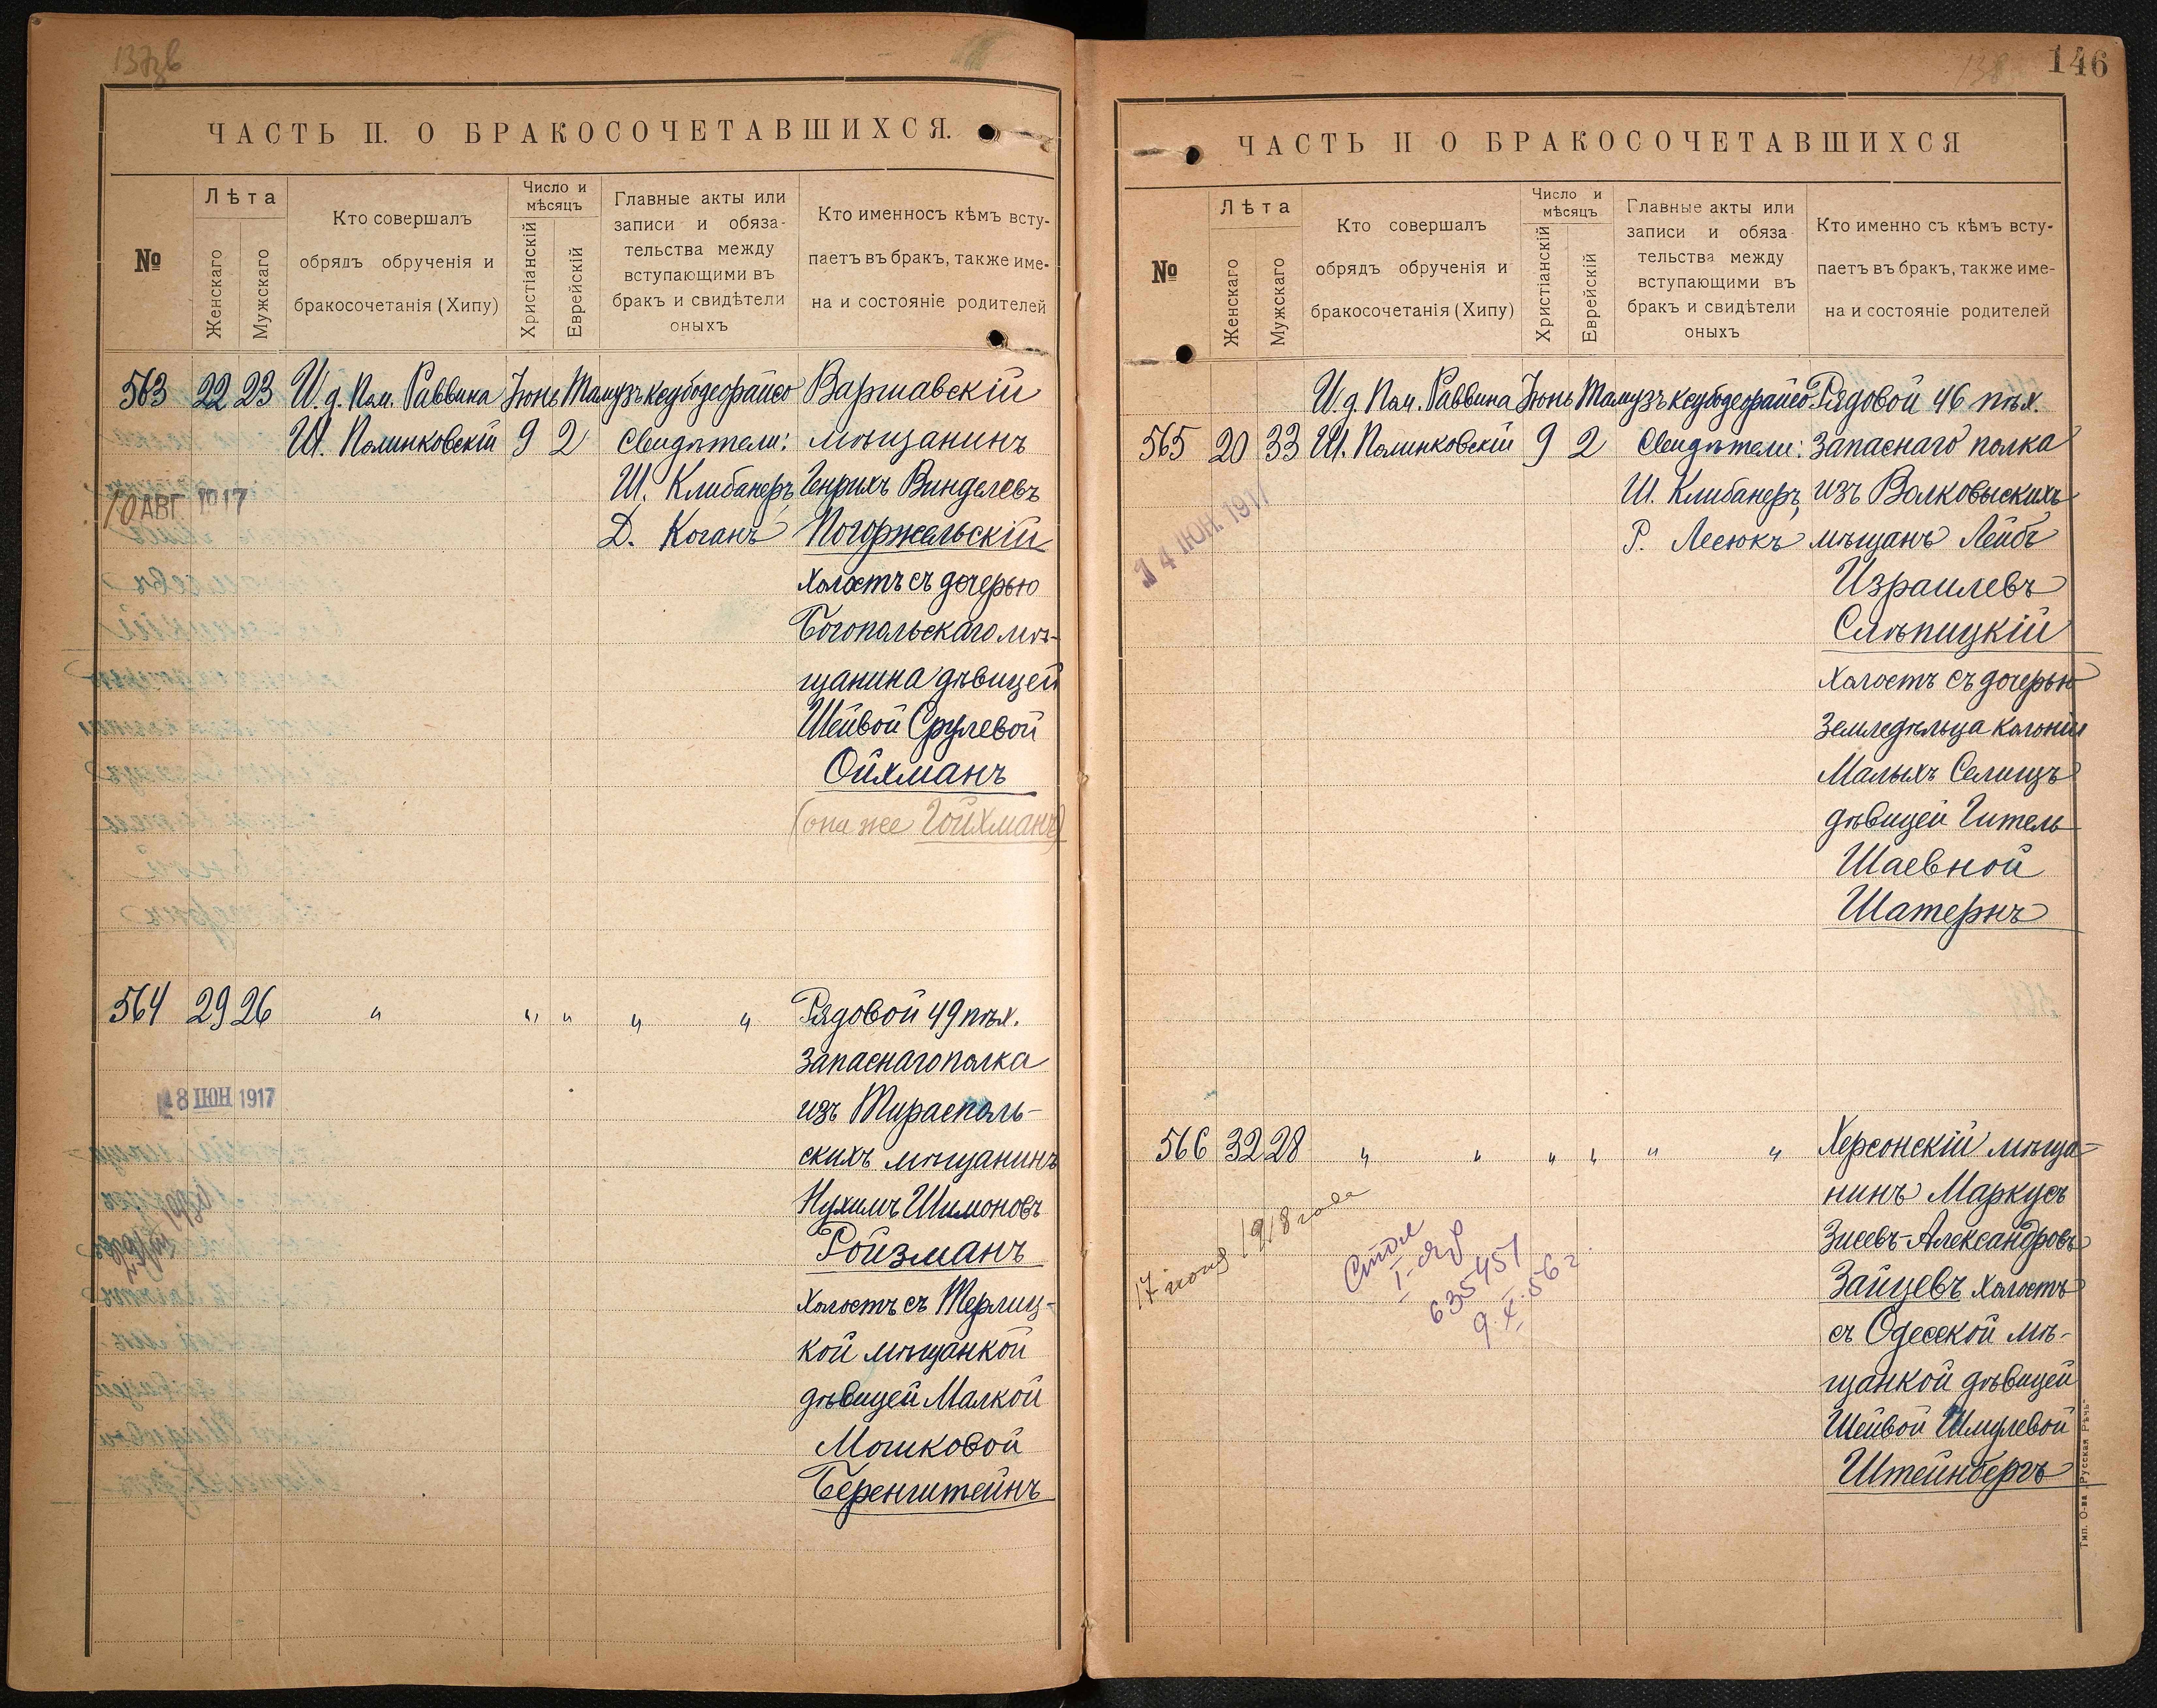 146
ЧАСТЬ II. О БРАКОСОЧЕТАВШИХСЯ.
№
Лѣта
Женскаго
Мужскаго
Кто совершалъ
обрядъ обрученія и
бракосочетанія (Хипу)
Число и
мѣсяцъ
Христіанскій
Еврейскій
Главные акты или
записи и обяза-
тельства между
вступающими въ
бракъ и свидѣтели
оныхъ
Кто именносъ кѣмъ всту-
паетъ въ бракъ, также име-
на и состояніе родителей
563 22 23 И. д. Пом. Раввина Іюнь Тамузъ ксубодеорайсо Варшавскій
Ш. Полинковскій 9 2 Свидѣтели: мѣщанинъ
Ш. Клибанеръ, Генрихъ Винделевъ
10 АВГ 1917
Д. Коганъ Погоржельскій
холостъ съ дочерью
Богопольскаго мѣ-
щанина дѣвицей
Шейвой Срулевой
Ойхманъ
(она же Гойхманъ)
564 29 26 " " " " " Рядовой 49 пѣх.
запаснаго полка
28 ІЮН 1917
изъ Тирасполь-
скихъ мѣщанинъ
Нухимъ Шимоновъ
Ройзманъ
холостъ съ Терлиц-
кой мѣщанкой
дѣвицей Малкой
Мошковой
Беренштейнъ
ЧАСТЬ II О БРАКОСОЧЕТАВШИХСЯ
№
Лѣта
Женскаго
Мужскаго
Кто совершалъ
обрядъ обрученія и
бракосочетанія (Хипу)
Число и
мѣсяцъ
Христіанскій
Еврейскій
Главные акты или
записи и обяза-
тельства между
вступающими въ
бракъ и свидѣтели
оныхъ
Кто именно съ кѣмъ всту-
паетъ въ бракъ, также име-
на и состояніе родителей
И. д. Пом. Раввина Іюнь Тамузъ ксубодеорайсо Рядовой 46 пѣх.
565 20 33 Ш. Полинковскій 9 2 Свидѣтели: запаснаго полка
Ш. Клибанеръ, изъ Волковыскихъ
14 ІЮН. 1917
Р. Лесюкъ мѣщанъ Лейбъ
Израилевъ
Слѣпицкій
холостъ съ дочерью
земледѣльца колоніи
Малыхъ Селищъ
дѣвицей Гитель
Шаевной
Шатернъ
566 32 28 " " " " " " Херсонскій мѣща-
нинъ Маркусъ
17 іюня 1918 года
Зисевъ-Александровъ
Зайцевъ холостъ
съ Одесской мѣ-
щанкой дѣвицей
Шейвой Шмулевой
Штейнбергъ
635451
9.X.56 г.
Тип. О-ва „Русская Рѣчь"